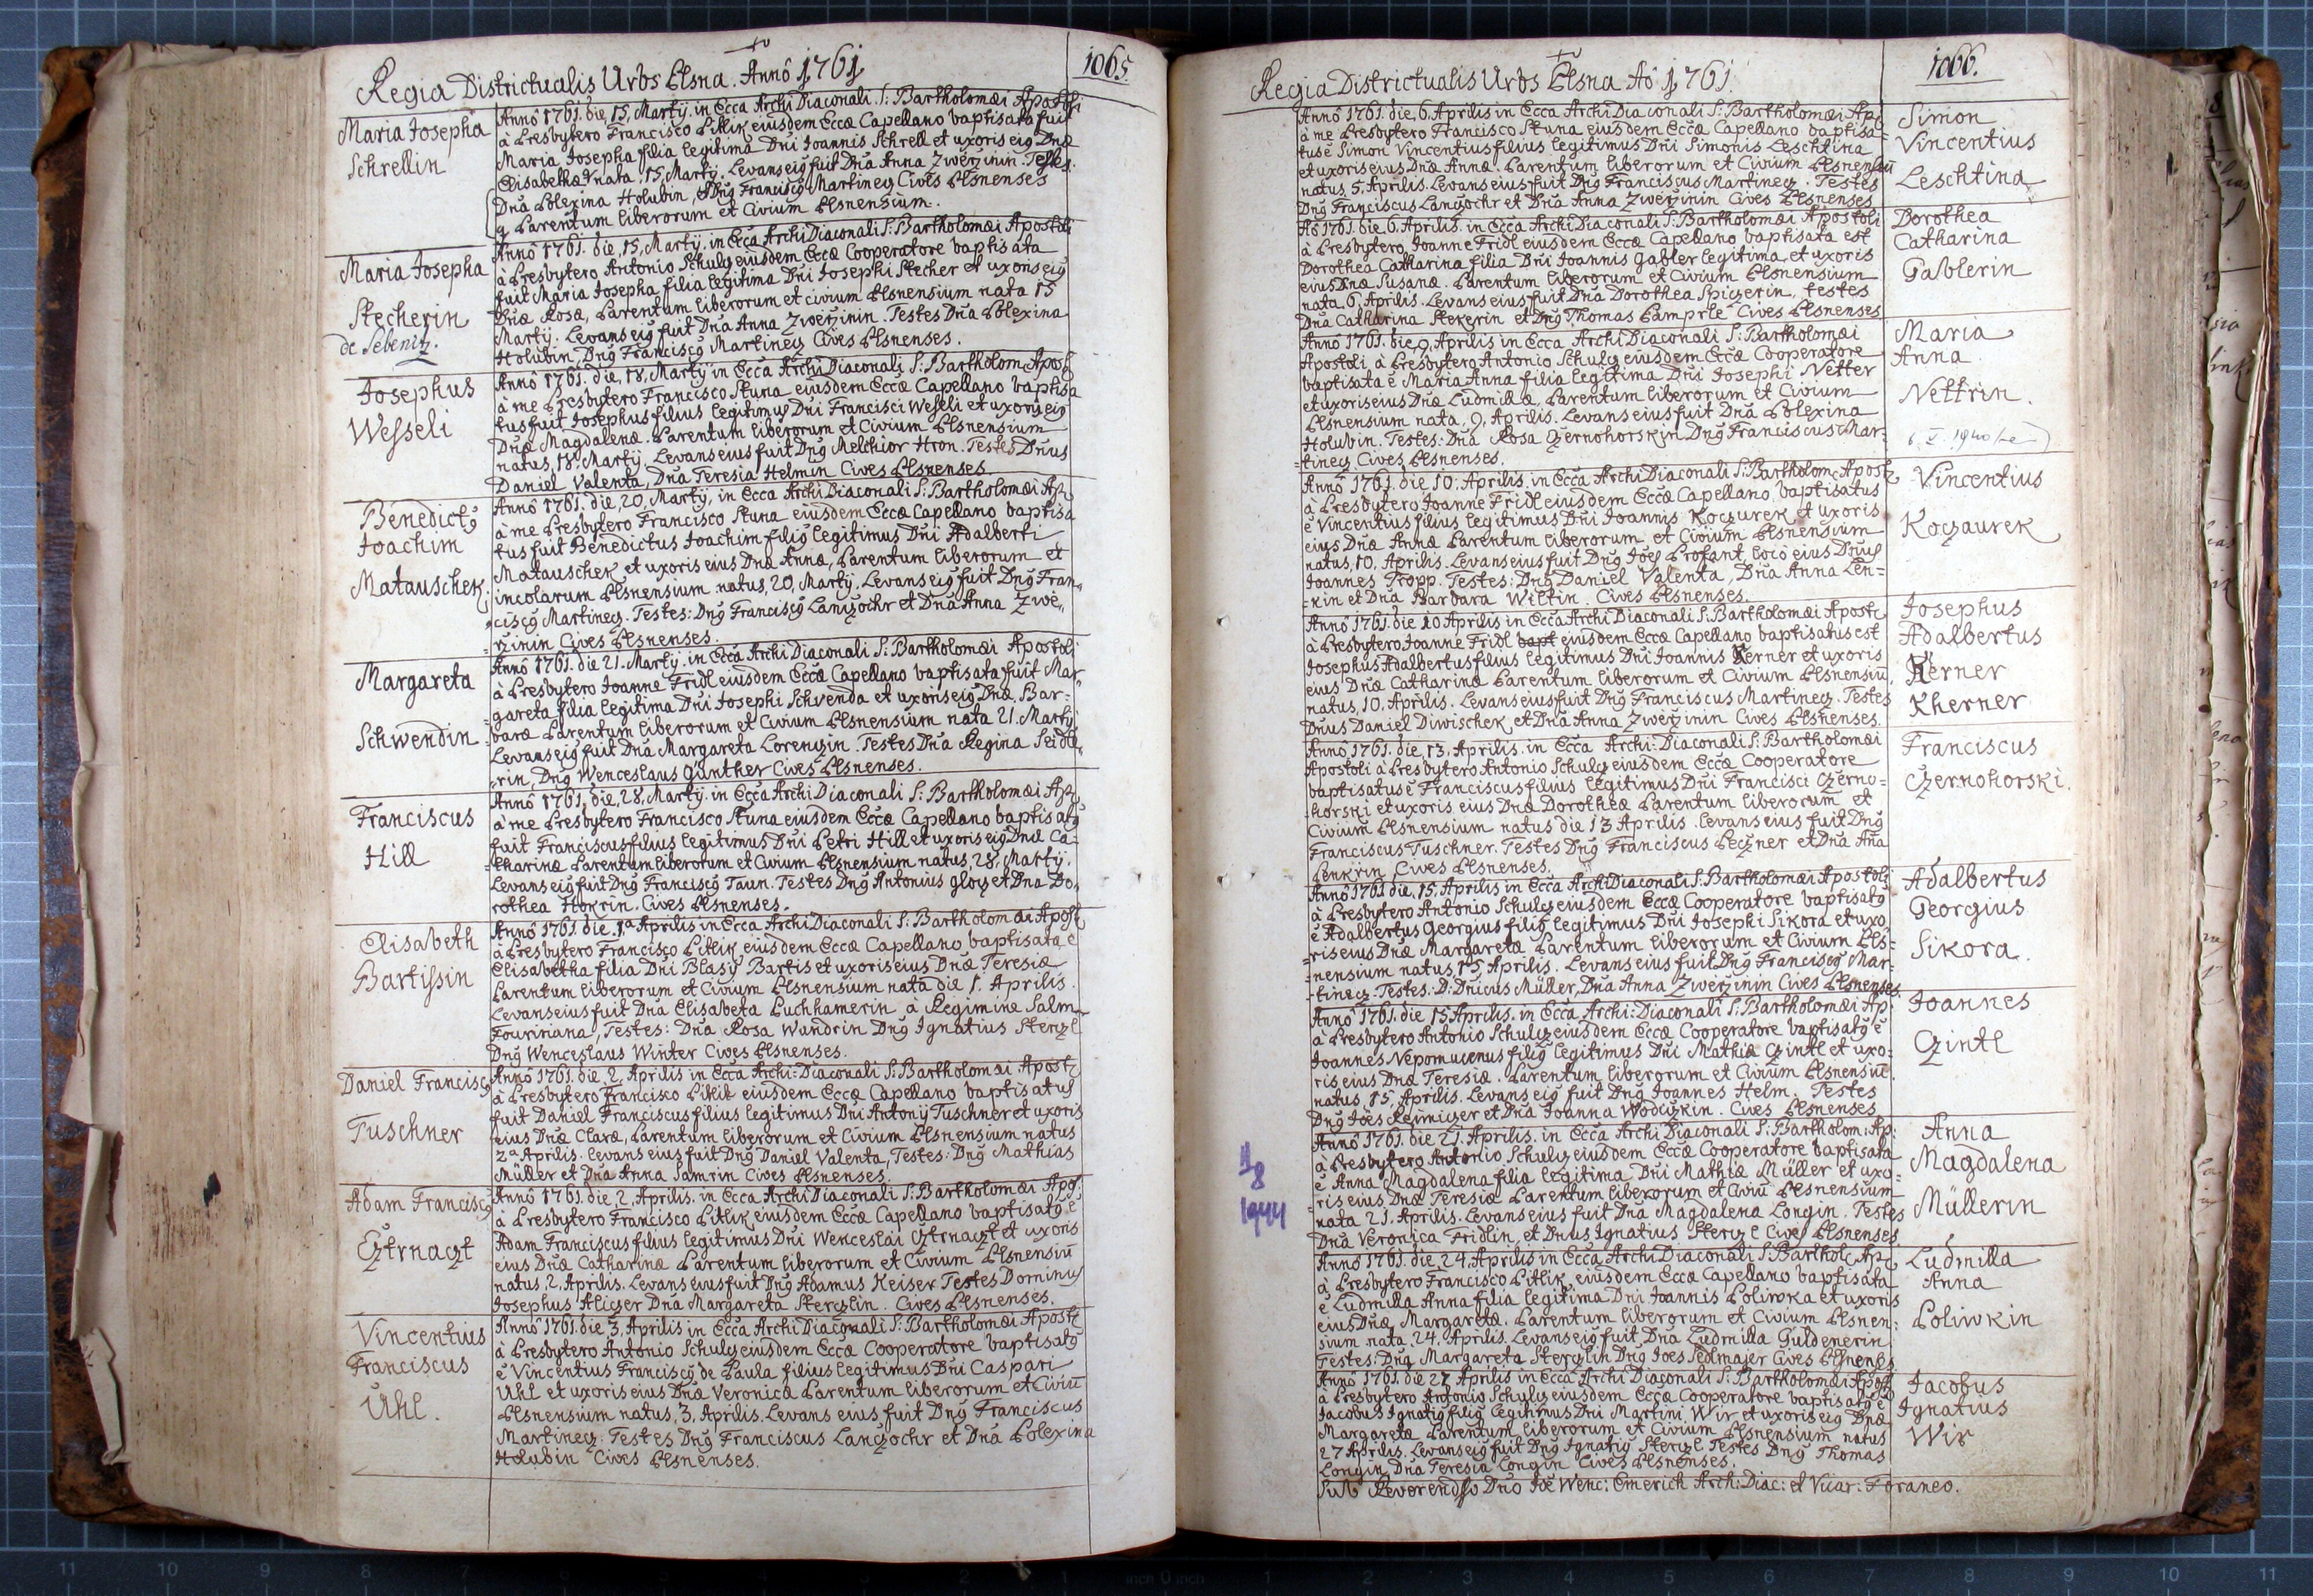 Regia Districtualis Urbs Plsna. Annô 1761
1065.
Maria Josepha
Schrellin
Annô 1761. die, 15, Martÿ. in Ecca ArchiDiaconali S: Bartholomæi Apostoli
à Presbytero Francisco Pitlik eiusdem Eccæ Capellano baptisata fuit
Maria Josepha filia legitima Dni Joannis Schrell et uxoris eig Dnæ
Elisabethæ nata, 15, Martÿ. Levans eig fuit Dna Anna Zwerzinin. Testes.
Dna Polexina Holubin, Dng Franciscg Martinecz Cives Plsnenses
Parentum liberorum et Civium Plsnensium.
Maria Josepha
Stecherin
de Sebenitz.
Annô 1761. die, 15, Martÿ. in Ecca ArchiDiaconali S: Bartholomæi Apostoli
à Presbytero Antonio Schulcz eiusdem Eccæ Cooperatore baptisata
fuit Maria Josepha filia legitima Dni Josephi Stecher et uxoris eig
Dnæ Rosæ, Parentum liberorum et civium Plsnensium nata 15
Martÿ. Levans eig fuit Dna Anna Zwerzinin. Testes Dna Polexina
Holubin, Dng Franciscg Martinecz Cives Plsnenses.
Josephus
Wesseli
Annô 1761. die, 18, Martÿ in Ecca ArchiDiaconali S: Bartholom: Apost
à me Presbytero Francisco Stuna eiusdem Eccæ Capellano baptisa
tus fuit Josephus filius legitimus Dni Francisci Wesseli et uxoris eig
Dnæ Magdalenæ. Parentum liberorum et Civium Plsnensium
natus, 18. Martÿ. Levans eius fuit Dng Melchior Hron. Testes Dnus
Daniel Valenta, Dna Teresia Helmin Cives Plsnenses.
Benedictg
Joachim
Matauschek
Annô 1761. die, 20, Martÿ, in Ecca ArchiDiaconali S: Bartholomæi Ap
à me Presbytero Francisco Stuna eiusdem Eccæ Capellano baptisa
tus fuit Benedictus Joachim filig legitimus Dni Adalberti
Matauschek et uxoris eius Dnæ Annæ, Parentum liberorum et
incolarum Plsnensium natus, 20, Martÿ. Levans eig fuit Dng Fran
ciscg Martinecz. Testes: Dng Franciscg Lanczochr et Dna Anna Zwe
rzinin Cives Plsnenses.
Margareta
Schwendin
Annô 1761. die 21. Martÿ. in Ecca ArchiDiaconali S: Bartholomæi Apostoli
à Presbytero Joanne Fridl eiusdem Eccæ Capellano baptisata fuit Mar
gareta filia legitima Dni Josephi Schvenda et uxoris eig Dnæ Bar=
baræ Parentum liberorum et Civium Plsnensium nata 21. Martÿ
Levans eig fuit Dna Margareta Lorenczin. Testes Dna Regina Seidle
rin, Dng Wenceslaus Günther Cives Plsnenses.
Franciscus
Hill
Annô 1761, die, 28, Martÿ. in Ecca ArchiDiaconali S: Bartholomæi Ap
à me Presbytero Francisco Stuna eiusdem Eccæ Capellano baptisatg
fuit Franciscus filius legitimus Dni Petri Hill et uxoris eig Dnæ Ca=
tharinæ Parentum liberorum et Civium Plsnensium natus, 28, Martÿ.
Levans eig fuit Dng Franciscg Taun. Testes Dng Antonius Glocz et Dna Do
rothea Hokrin. Cives Plsnenses.
Elisabeth
Bartissin
Annô 1761. die, 1a Aprilis in Ecca ArchiDiaconali S: Bartholomæi Apost
à Presbytero Francisco Pitlik eiusdem Eccæ Capellano baptisata e
Elisabetha filia Dni Blasÿ Bartis et uxoris eius Dnæ Teresiæ
Parentum liberorum et Civium Plsnensium nata die 1. Aprilis.
Levans eius fuit Dna Elisabeta Puchhamerin à Regimine Salm
Fouriniana, Testes: Dna Rosa Wundrin Dng Ignatius Sterzl
Dng Wenceslaus Winter Cives Plsnenses.
Daniel Franciscg
Tuschner
Annô 1761. die, 2, Aprilis in Ecca Archi:Diaconali S: Bartholomæi Apost
à Presbytero Francisco Pitlik eiusdem Eccæ Capellano baptisatus
fuit Daniel Franciscus filius legitimus Dni Antonÿ Tuschner et uxoris
eius Dnæ Claræ, Parentum liberorum et Civium Plsnensium natus
2a Aprilis. levans eius fuit Dng Daniel Valenta, Testes: Dng Mathias
Müller et Dna Anna Samrin Cives Plsnenses.
Adam Franciscg
Cztrnaczt
Annô 1761. die, 2, Aprilis. in Ecca ArchiDiaconali S: Bartholomæi Apo
à Presbytero Francisco Pitlik eiusdem Eccæ Capellano baptisatg e
Adam Franciscus filius legitimus Dni Wenceslai Cztrnaczt et uxoris
eius Dnæ Catharinæ Parentum liberorum et Civium Plsnensiu
natus, 2, Aprilis. Levans eius fuit Dng Adamus Keiser Testes Dominus
Josephus Aliczer Dna Margareta Sterczlin. Cives Plsnenses.
Vincentius
Franciscus
Uhl.
Annô 1761. die 3, Aprilis in Ecca ArchiDiaconali S: Bartholomæi Apost
à Presbytero Antonio Schulcz eiusdem Eccæ Cooperatore baptisatg
e Vincentius Franciscg de Paula filius legitimus Dni Caspari
Uhl et uxoris eius Dnæ Veronicæ Parentum liberorum et Civiu
Plsnensium natus, 3, Aprilis. Levans eius fuit Dng Franciscus
Martinecz. Testes Dng Franciscus Lanczochr et Dna Polexina
Holubin Cives Plsnenses.
Regia Districtualis Urbs Plsna Aô 1761.
1066.
Annô 1761. die, 6, Aprilis in Ecca ArchiDiaconali S: Bartholomæi Ap
à me Presbytero Francisco Stuna eiusdem Eccæ Capellano baptisa=
tus e Simon Vincentius filius legitimus Dni Simonis Leschtina
et uxoris eius Dnæ Annæ. Parentum liberorum et Civium Plsnensiu
natus, 5, Aprilis. Levans eius fuit Dng Franciscus Martinecz. Testes
Dng Franciscus Lanczochr et Dna Anna Zwerzinin Cives Plsnenses
Simon
Vincentius
Leschtina
Aô 1761. die, 6, Aprilis. in Ecca ArchiDiaconali S: Bartholomæi Apostoli
à Presbytero Joanne Fridl eiusdem Eccæ Capellano baptisata est
Dorothea Catharina filia Dni Joannis Gabler legitima, et uxoris
eius Dnæ Susanæ. Parentum liberorum et Civium Plsnensium
nata, 6, Aprilis. Levans eius fuit Dna Dorothea Spiczerin, testes
Dna Catharina Stekerin et Dng Thomas Pamprle Cives Plsnenses
Dorothea
Catharina
Gablerin
Annô 1761. die, 9, Aprilis in Ecca ArchiDiaconali S: Bartholomæi
Apostoli, à Presbytero Antonio Schulcz eiusdem Eccæ Cooperatore
baptisata e Maria Anna filia legitima Dni Josephi Netter
et uxoris eius Dnæ Ludmillæ, Parentum liberorum et Civium
Plsnensium nata, 9, Aprilis. Levans eius fuit Dna Polexina
Holubin. Testes: Dna Rosa Czernohorskin Dng Franciscus Mar=
=tinecz Cives Plsnenses.
Maria
Anna
Nettrin.
Annô 1761. die 10. Aprilis. in Ecca ArchiDiaconali S: Bartholom: Apost
à Presbytero Joanne Fridl eiusdem Eccæ Capellano, baptisatus
e Vincentius filius legitimus Dni Joannis Koczurek et uxoris
eius Dnæ Annæ Parentum liberorum et Civium Plsnensium
natus, 10, Aprilis. Levans eius fuit Dng Joes Profant, locô eius Dnus
Joannes Tropp. Testes: Dng Daniel Valenta, Dna Anna Len=
=kin et Dna Barbara Wiltin. Cives Plsnenses.
Vincentius
Koczaurek
Annô 1761. die 10 Aprilis in Ecca ArchiDiaconali S: Bartholomæi Apost
à Presbytero Joanne Fridl bapt eiusdem Eccæ Capellano baptisatus est
Josephus Adalbertus filius legitimus Dni Joannis Kerner et uxoris
eius Dnæ Catharinæ Parentum liberorum et Civium Plsnensiu
natus, 10. Aprilis. Levans eius fuit Dng Franciscus Martinecz. Testes
Dnus Daniel Diwischek, et Dna Anna Zwerzinin Cives Plsnenses.
Josephus
Adalbertus
Kerner
Kherner
Annô 1761. die, 13, Aprilis. in Ecca Archi:Diaconali S: Bartholomæi
Apostoli à Presbytero Antonio Schulcz eiusdem Eccæ Cooperatore
baptisatus e Franciscus filius legitimus Dni Francisci Czerno=
=horski et uxoris eius Dnæ Dorotheæ Parentum liberorum et
Civium Plsnensium natus die 13 Aprilis. levans eius fuit Dng
Franciscus Tuschner. Testes Dng Franciscus Peczner et Dna Aña
Penkrin Cives Plsnenses.
Franciscus
Czernohorski.
Annô 1761. die, 15, Aprilis in Ecca ArchiDiaconali S: Bartholomæi Apostoli
à Presbytero Antonio Schulcz eiusdem Eccæ Cooperatore baptisatg
e Adalbertus Georgius filig legitimus Dni Josephi Sikora et uxo
ris eius Dnæ Margaretæ Parentum liberorum et Civium Pls=
nensium natus, 15, Aprilis. Levans eius fuit Dng Franciscg Mar=
=tinecz. Testes: D: Dnicus Müller, Dna Anna Zwerzinin Cives Plsnenses
Adalbertus
Georgius
Sikora.
Annô 1761. die 15 Aprilis. in Ecca Archi:Diaconali S: Bartholomæi Ap.
à Presbytero Antonio Schulcz eiusdem Eccæ Cooperatore baptisatg e
Joannes Nepomucenus filig legitimus Dni Mathiæ Czintl et uxo=
ris eius Dnæ Teresiæ. Parentum liberorum et Civium Plsnensiu
natus, 15, Aprilis. Levans eig fuit Dng Joannes Helm. Testes
Dng Joes Reimiczer et Dna Joanna Wodiczkin. Cives Plsnenses
Joannes
Czintl
1
8
1944
Annô 1761. die 21. Aprilis. in Ecca ArchiDiaconali S: Bartholom: Ap:
à Presbytero Antonio Schulcz eiusdem Eccæ Cooperatore baptisata
e Anna Magdalena filia legitima Dni Mathiæ Müller et uxo=
ris eius Dnæ Teresiæ Parentum liberorum et Civiu Plsnensium
nata 21. Aprilis. Levans eius fuit Dna Magdalena Longin. Testes
Dna Veronica Fridlin, et Dnus Ignatius Sterczl Cives Plsnenses
Anna
Magdalena
Müllerin
Annô 1761. die, 24, Aprilis in Ecca ArchiDiaconali S: Barthol: Ap
à Presbytero Francisco Pitlik, eiusdem Eccæ Capellano baptisata
e Ludmilla Anna filia legitima Dni Joannis Poliwka et uxoris
eius Dnæ Margaretæ. Parentum liberorum et Civium Plsnen=
sium nata, 24, Aprilis. Levans eig fuit Dna Ludmilla Guldenerin
Testes: Dna Margareta Sterczlin Dng Joes Sedlmajer Cives Plsnenses
Ludmilla
Anna
Poliwkin
Annô 1761. die 27 Aprilis in Ecca Archi Diaconali S: Bartholomæi Apost
à Presbytero Antonio Schulcz eiusdem Eccæ Cooperatore baptisatg e
Jacobus Ignatig filig legitimus Dni Martini Wir et uxoris eig Dnæ
Margaretæ Parentum liberorum et Civium Plsnensium natus
27 Aprilis. Levans eig fuit Dng Ignatig Sterczl Testes Dng Thomas
Longin, Dna Teresia Longin Cives Plsnenses.
Jacobus
Ignatius
Wir
Sub Reverendsso Dno Joe Wenc: Emerich Arch:Diac: et Vicar: Foraneo.